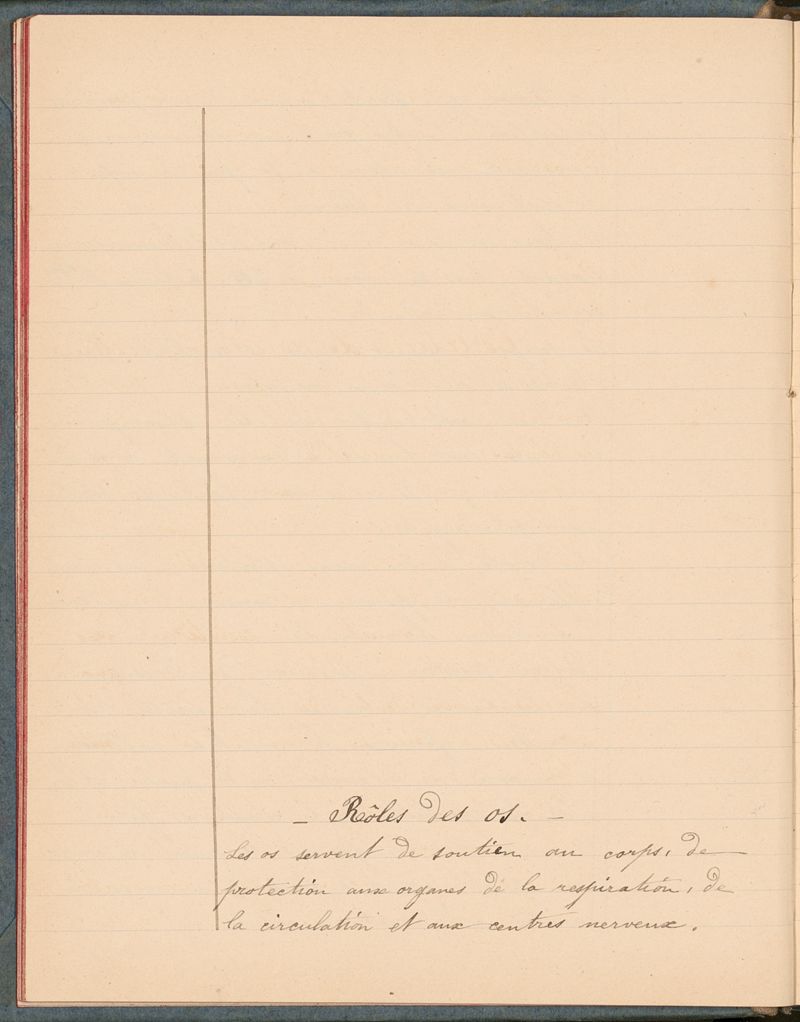 – Rôles des os. –
Les os servent de soutien au corps, de
protection aux organes de la respiration, de
la circulation et aux centres nerveux.